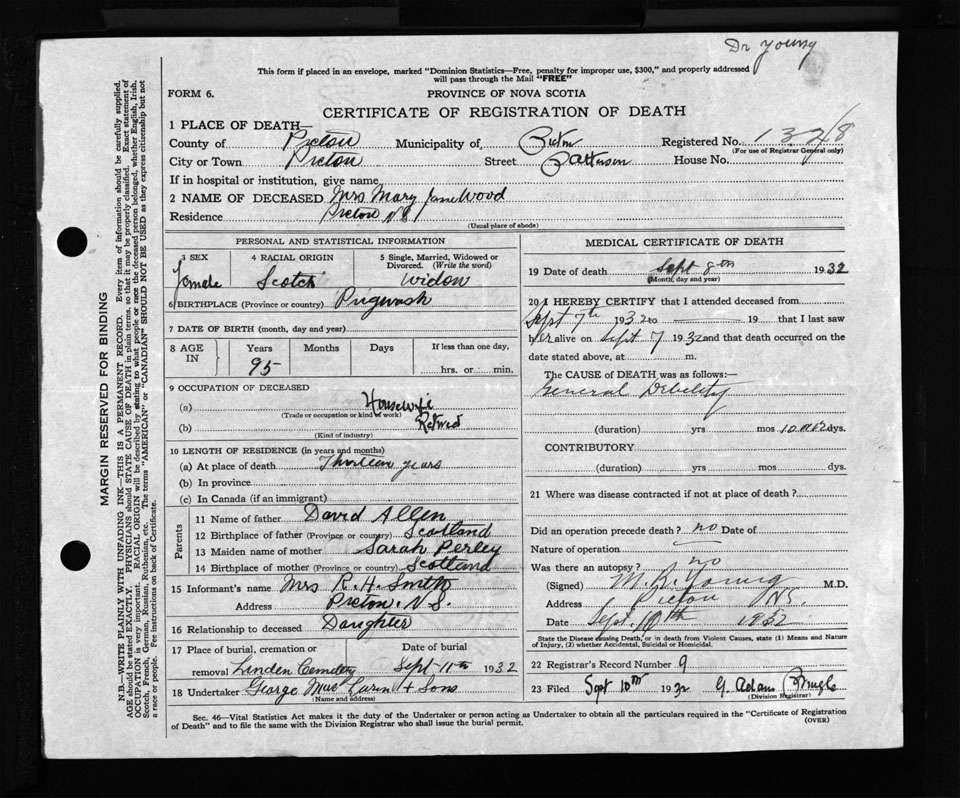 Dr Young
This form if placed in an envelope, marked "Dominion Statistics—Free, penalty for improper use, $300," and properly addressed
will pass through the Mail "FREE"
FORM 6.
PROVINCE OF NOVA SCOTIA
CERTIFICATE OF REGISTRATION OF DEATH
1 PLACE OF DEATH—
County of Pictou Municipality of Pictou Registered No. 1328
(For use of Registrar General only)
City or Town Pictou Street Patterson House No.
If in hospital or institution, give name
2 NAME OF DECEASED Mrs Mary Jane Wood
Residence Pictou N.S.
(Usual place of abode)
PERSONAL AND STATISTICAL INFORMATION
3 SEX 4 RACIAL ORIGIN 5 Single, Married, Widowed or
Divorced. (Write the word)
Female Scotch Widow
6 BIRTHPLACE (Province or country) Pugwash
7 DATE OF BIRTH (month, day and year)
8 AGE IN Years Months Days If less than one day,
95 hrs. or min.
9 OCCUPATION OF DECEASED
(a) Housewife
(Trade or occupation or kind of work)
(b) Retired
(Kind of industry)
10 LENGTH OF RESIDENCE (in years and months)
(a) At place of death Thirteen years
(b) In province
(c) In Canada (if an immigrant)
Parents
11 Name of father David Allen
12 Birthplace of father (Province or country) Scotland
13 Maiden name of mother Sarah Perley
14 Birthplace of mother (Province or country) Scotland
15 Informant's name Mrs R. H. Smith
Address Pictou. N.S.
16 Relationship to deceased Daughter
17 Place of burial, cremation or Date of burial
removal Linden Cemetery Sept-11th 1932
18 Undertaker George Mac Laren + Sons
(Name and address)
MEDICAL CERTIFICATE OF DEATH
19 Date of death Sept 8th 1932
(Month, day and year)
20 I HEREBY CERTIFY that I attended deceased from
Sept 7th 1932 to 19 that I last saw
her alive on Sept 7 1932 and that death occurred on the
date stated above, at m.
The CAUSE of DEATH was as follows:
General Debility
(duration) yrs mos 10 dys.
CONTRIBUTORY
(duration) yrs mos. dys.
21 Where was disease contracted if not at place of death?
Did an operation precede death? no Date of
Nature of operation
Was there an autopsy? no
(Signed) M. R. Young M.D.
Address Pictou NS.
Date Sept. 10th 1932
State the Disease causing Death, or in death from Violent Causes, state (1) Means and Nature
of Injury, (2) whether Accidental, Suicidal or Homicidal.
22 Registrar's Record Number 9
23 Filed Sept 10th 1932 G. Adam
(Division Registrar)
Sec. 46—Vital Statistics Act makes it the duty of the Undertaker or person acting as Undertaker to obtain all the particulars required in the "Certificate of Registration
of Death" and to file the same with the Division Registrar who shall issue the burial permit. (OVER)
MARGIN RESERVED FOR BINDING
N.B.—WRITE PLAINLY WITH UNFADING INK—THIS IS A PERMANENT RECORD. Every item of information should be carefully supplied.
AGE should be stated EXACTLY. PHYSICIANS should STATE CAUSE OF DEATH in plain terms, so that it may be properly classified. Exact statement of
OCCUPATION is very important. RACIAL ORIGIN will be described by stating to what people or race the deceased person belonged, whether English, Irish,
Scotch, French, German, Russian, Ruthenian, etc. The terms "AMERICAN" or "CANADIAN" SHOULD NOT BE USED as they express citizenship but not
a race or people. Fee instructions on back of Certificate.